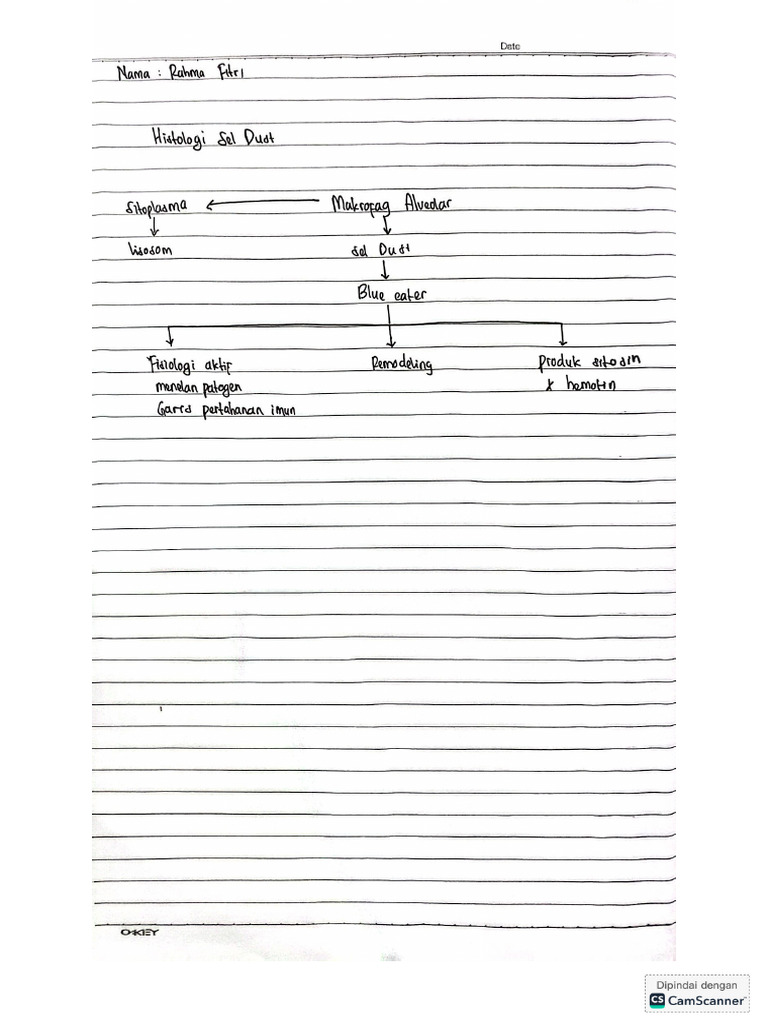 Date
Nama : Rahma Fitri
Histologi Sel Dust
Sitoplasma ← Makrofag Alveolar
lisosom sel Dust
Blue eater
Fisiologi aktif Remodeling Produk sitosin
menelan patogen & hemotin
Garis pertahanan imun
OKEY
Dipindai dengan
CS CamScanner